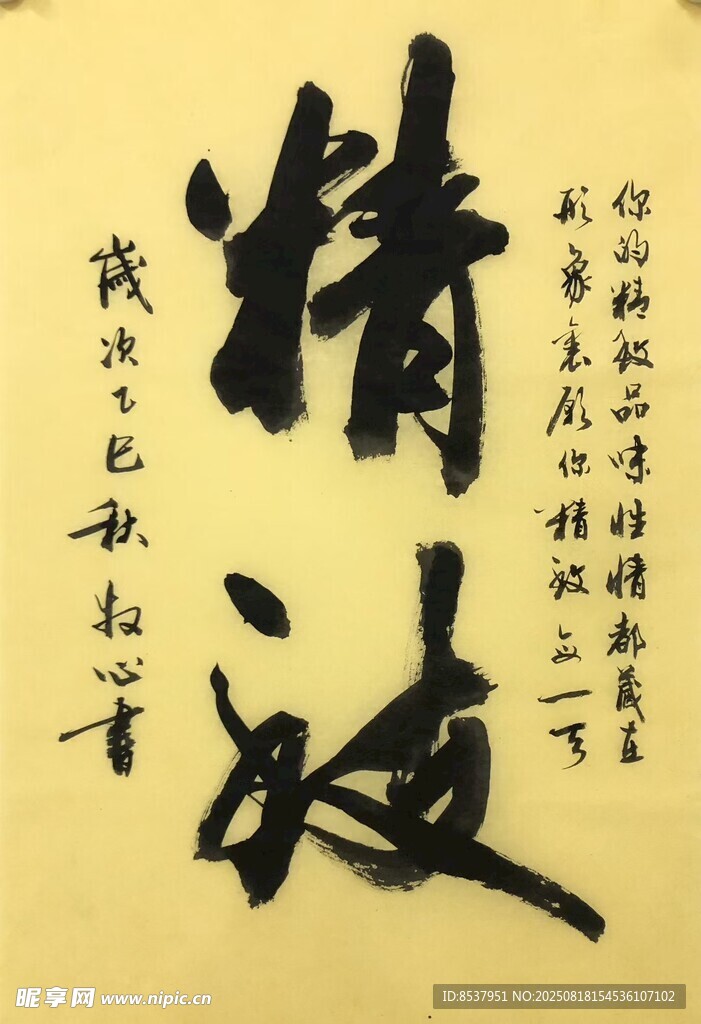 你的精致品味性情都藏在
形象里愿你精致每一天
精致
岁次乙巳秋牧心书
昵享网 www.nipic.cn
ID:8537951 NO:20250818154536107102